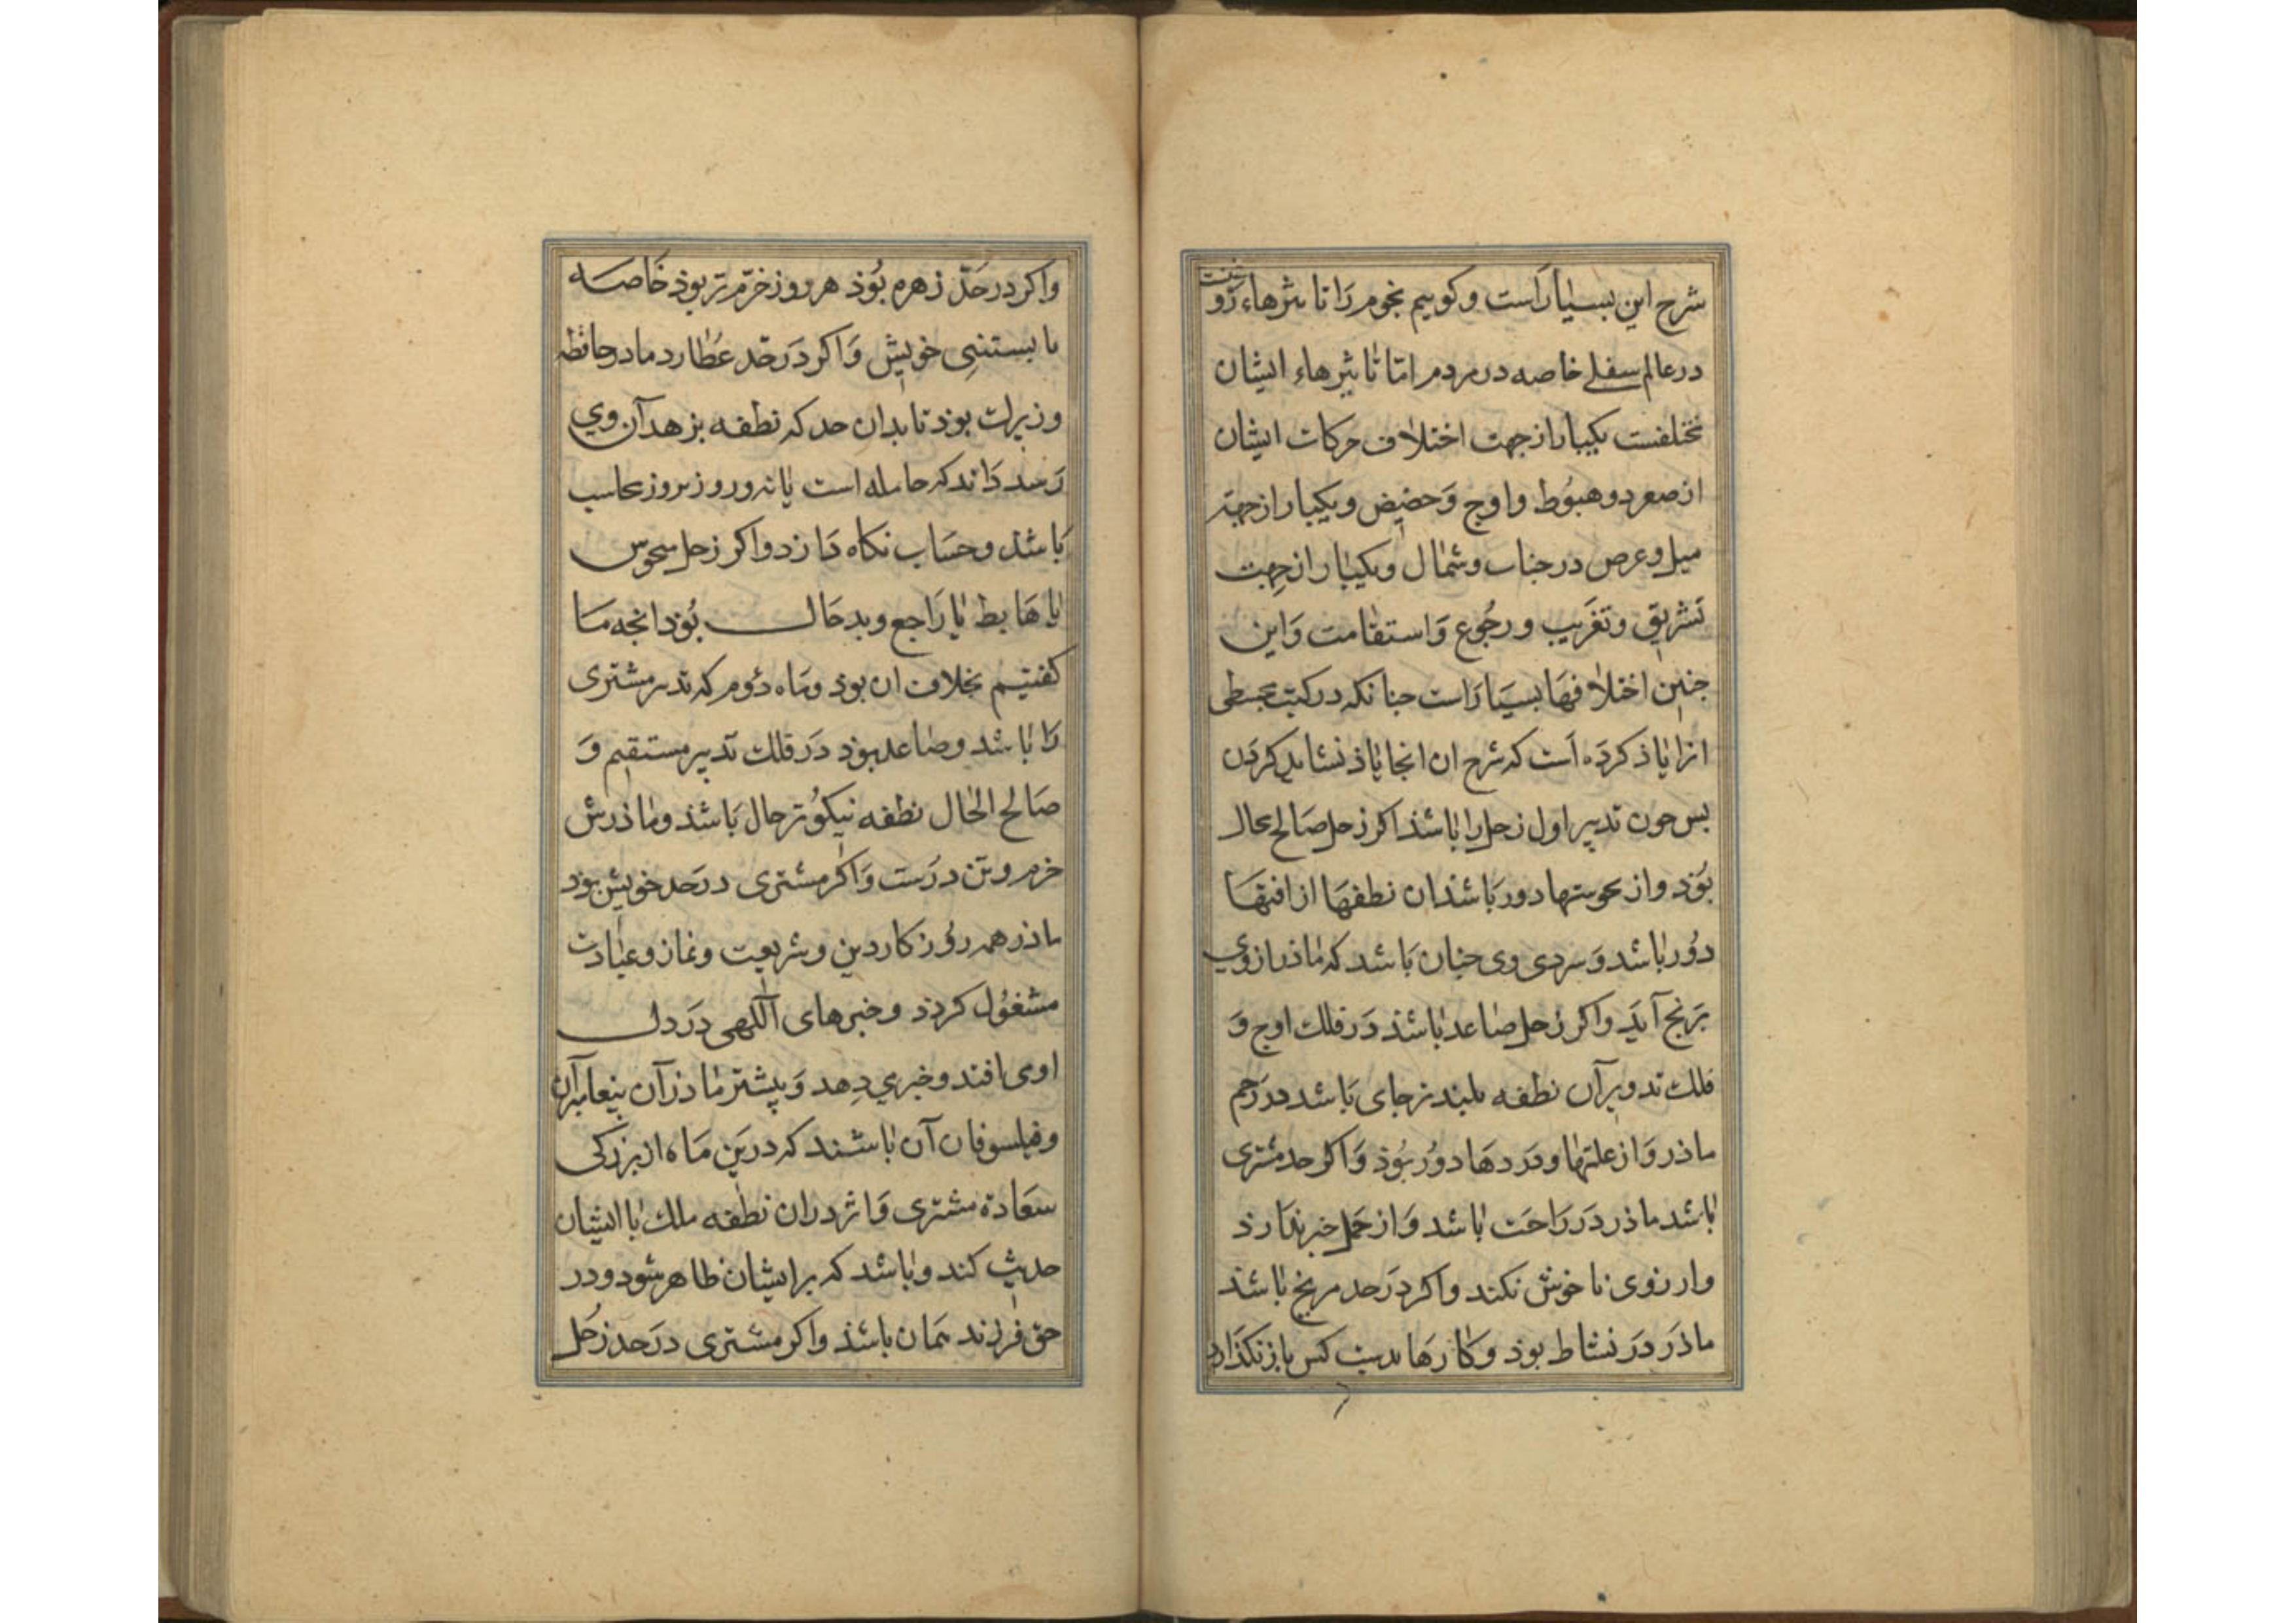 شرح این بسیارست و کوییم نجوم را تاثیرهاء زو نیست
در عالم سفلے خاصه در مردم امّا تاثیرهاء ایشان
مختلفست یکبار از جهت اختلاف حرکات ایشان
از صعود و هبوُط و اوج وَ حضیض و یکبار از جهة
میل و عرض در جناب و شمال و یکبار از جِهت
تشریق و تغَریب و رجُوع وَ استقامت وَ این
جنین اختلافهَا بسیَاراست جنانکه در کتب مجسطی
انرا یاذ کرَده است که شرح ان انجا یاذ نشاید کردن
بس جون تدبیر اول زحل را باشذ اکر زحل صَالح حال
بُوَذ و از نحوستها دور بَاشذ ان نطفهَا از افتهَا
دوُر باشد وَ سردی وی جنان بَاشد که ماذر از وي
برَنج آیَد و اکر زحل صَاعد باشذ دَر فلك اوج وَ
فلك تدویر آن نطفه بلبند تر جای بَاشد در رَحم
ماذر وَ از علتهَا و دَردهَا دوُر بُوذ وَ اکر حد مشتری
باشد ماذر دَر رَاحَت باشد وَ از حَمل خبر ندارذ
و ارزوی نا خوش نکند و اکر دَر حد مریخ باشذ
ماذَر دَر نشاط بوذ و کارهَا بدست کس باز نکذارد
و اکر در حَدّ زهره بُوَذ هر روز خرّم تر بوذ خَاصه
با بستنیِ خویش وَ اکر دَر حَد عُطارد مادر حافظه
و زیرك بوذ تا بدان حد که نطفه بزهدآن وي
رَسد دَاند که حامله است یا نه و روز بروز محاسب
بَاشذ و حسَاب نکاه دَارذ و اکر زحل منحوس
یا هَابط یا رَاجع و بد حَال بُوَذ انجه مَا
کفتیم بخلاف ان بوذ و مَاه دُوم که تدبیر مشتری
رَا باشد و صَاعد بوَذ دَر فلك تدبیر مستقیم وَ
صَالح الحال نطفه نیکوُ تر حال بَاشذ و ماذرش
خرم و تن درُست وَ اکر مشتری در حَد خویش بوَد
ماذر همه روُز کار دین و شریعت و نماز و عبادت
مشغوُل کردذ و خبرهای آلٓهی دَر دل
او می افتد و خبر مي دِهد وَ پیشتر ماذر آن پیغامبرآن
و فیلسوفان آن باشند که درین مَاه از بزرکی
سعَادة مشتری وَ اثر در ان نطفه ملك با ایشان
حدیث کند و باشد که بر ایشان ظاهر شود و در
حق فرزند همان باشذ و اکر مشتری در حد زحُل